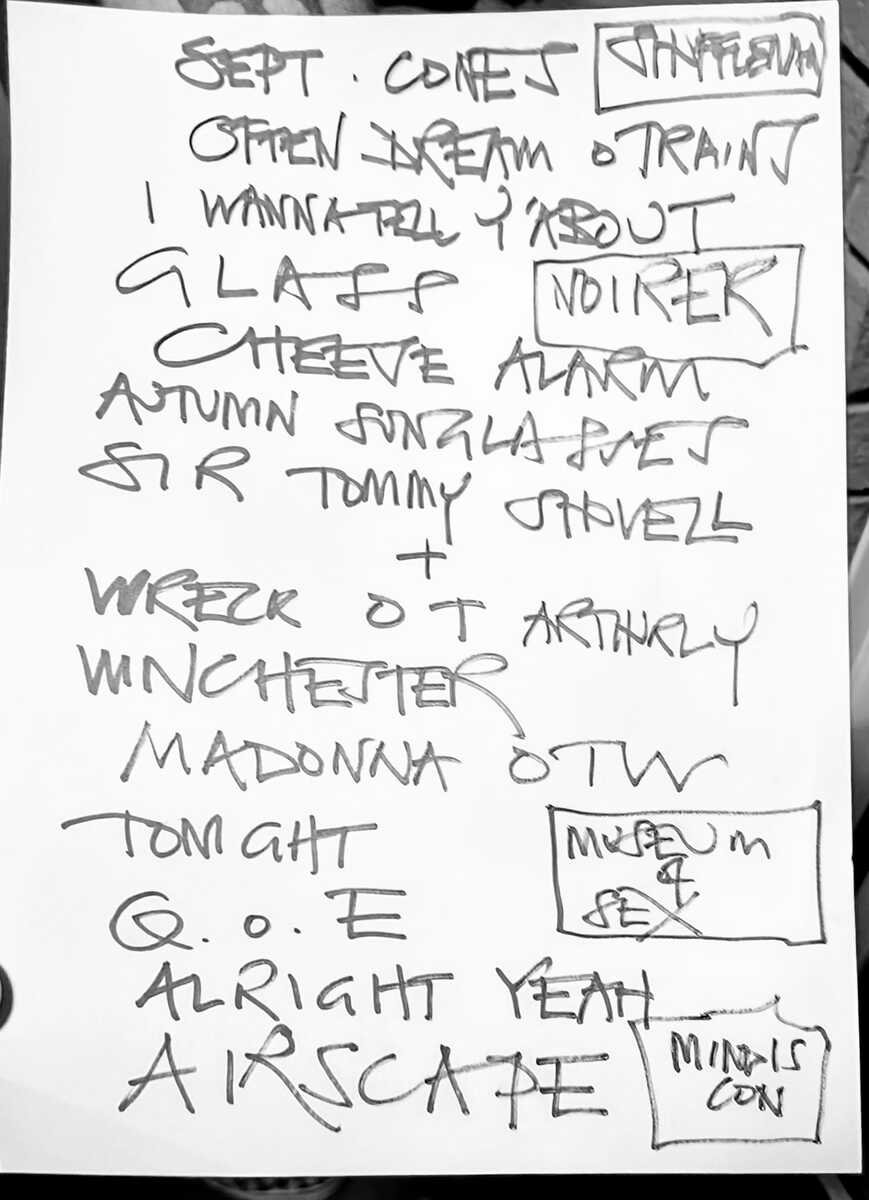 SEPT. CONES SHUFFLEMAN
OFTEN DREAM O TRAINS
I WANNA TELL Y'ABOUT
GLASS
NOIRER
CHEEVE ALARM
AUTUMN SUNGLASSES
SIR TOMMY SHOVELL
+
WRECK O T ARTHRLY
WINCHESTER
MADONNA OTW
TONIGHT
MUSEUM
4
SEX
Q.O.E
ALRIGHT YEAH
AIRSCAPE
MIND IS
CON